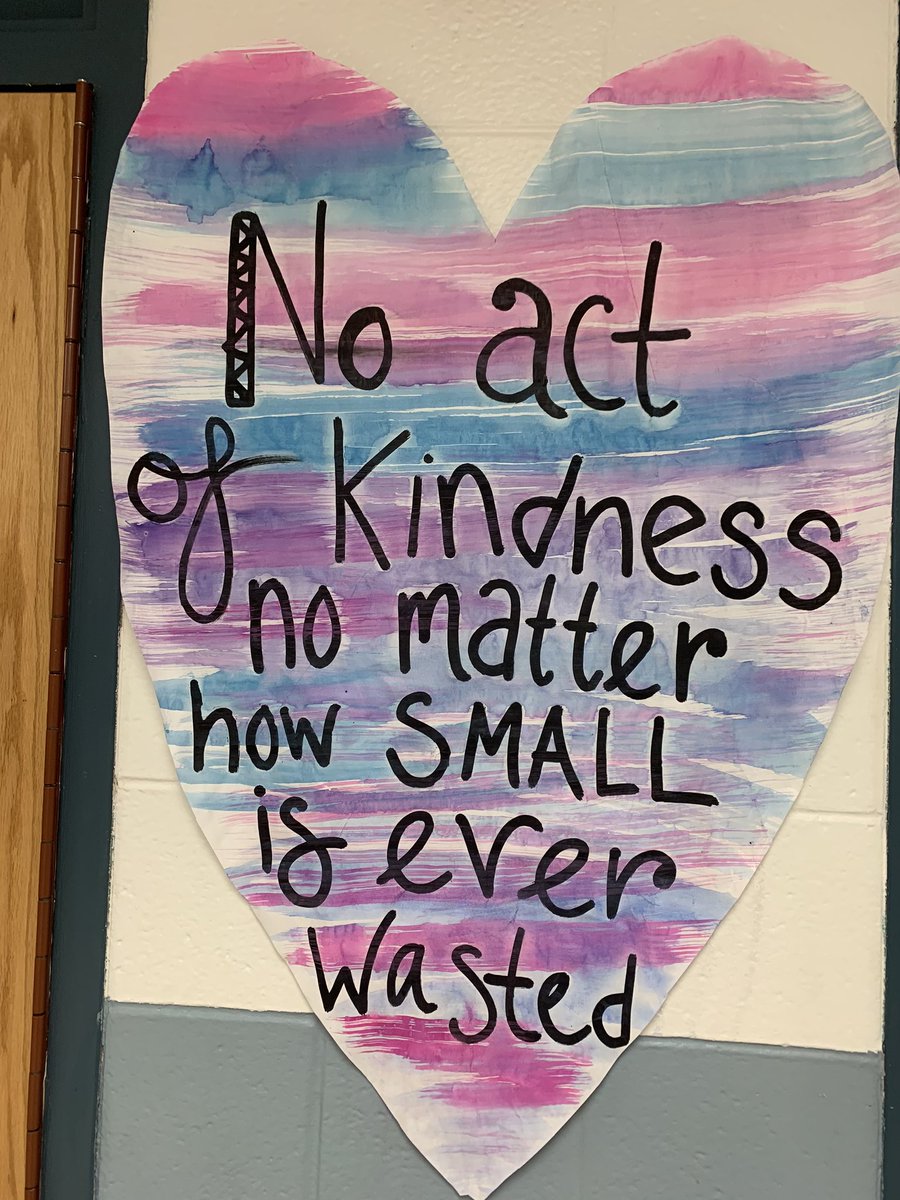 No act
of Kindness
no matter
how SMALL
is ever
wasted